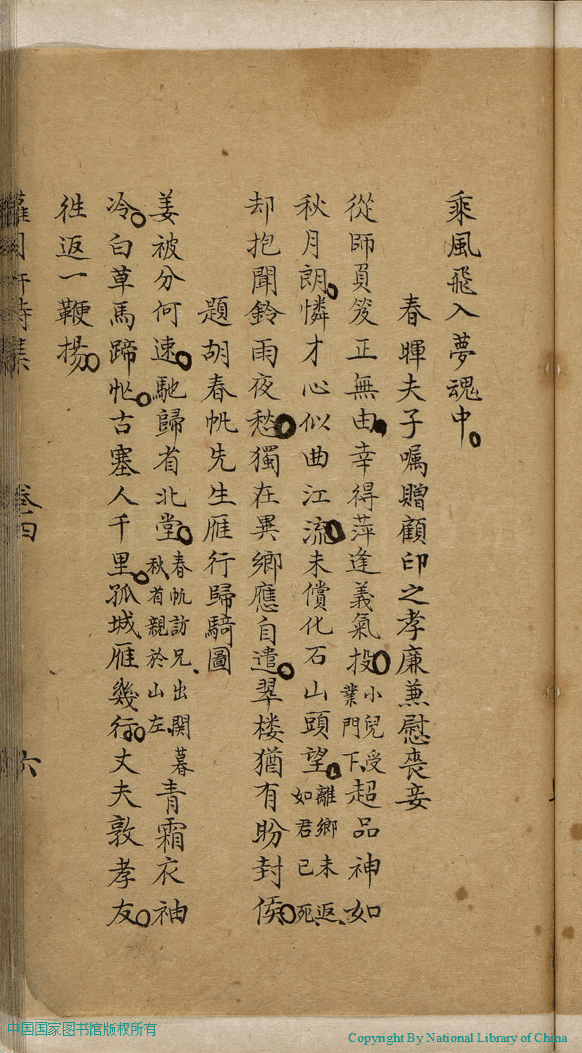 乘風飛入夢魂中
春暉夫子嘱贈顧印之孝廉兼慰喪妾
從師負笈正無由幸得萍逢義氣投小兒受業門下超品神如
秋月朗憐才心似曲江流未償化石山頭望離鄉未返如君已死
却抱聞鈴雨夜愁獨在異鄉應自遣翠楼猶有盼封侯
題胡春帆先生雁行歸騎圖
姜被分何速馳歸省北堂春帆訪兄出関暮秋省親於山左青霜衣袖
冷白草馬蹄忙古塞人千里孤城雁幾行丈夫敦孝友
徃返一鞭揚
卷四
六
中国国家图书馆版权所有
Copyright By National Library of China